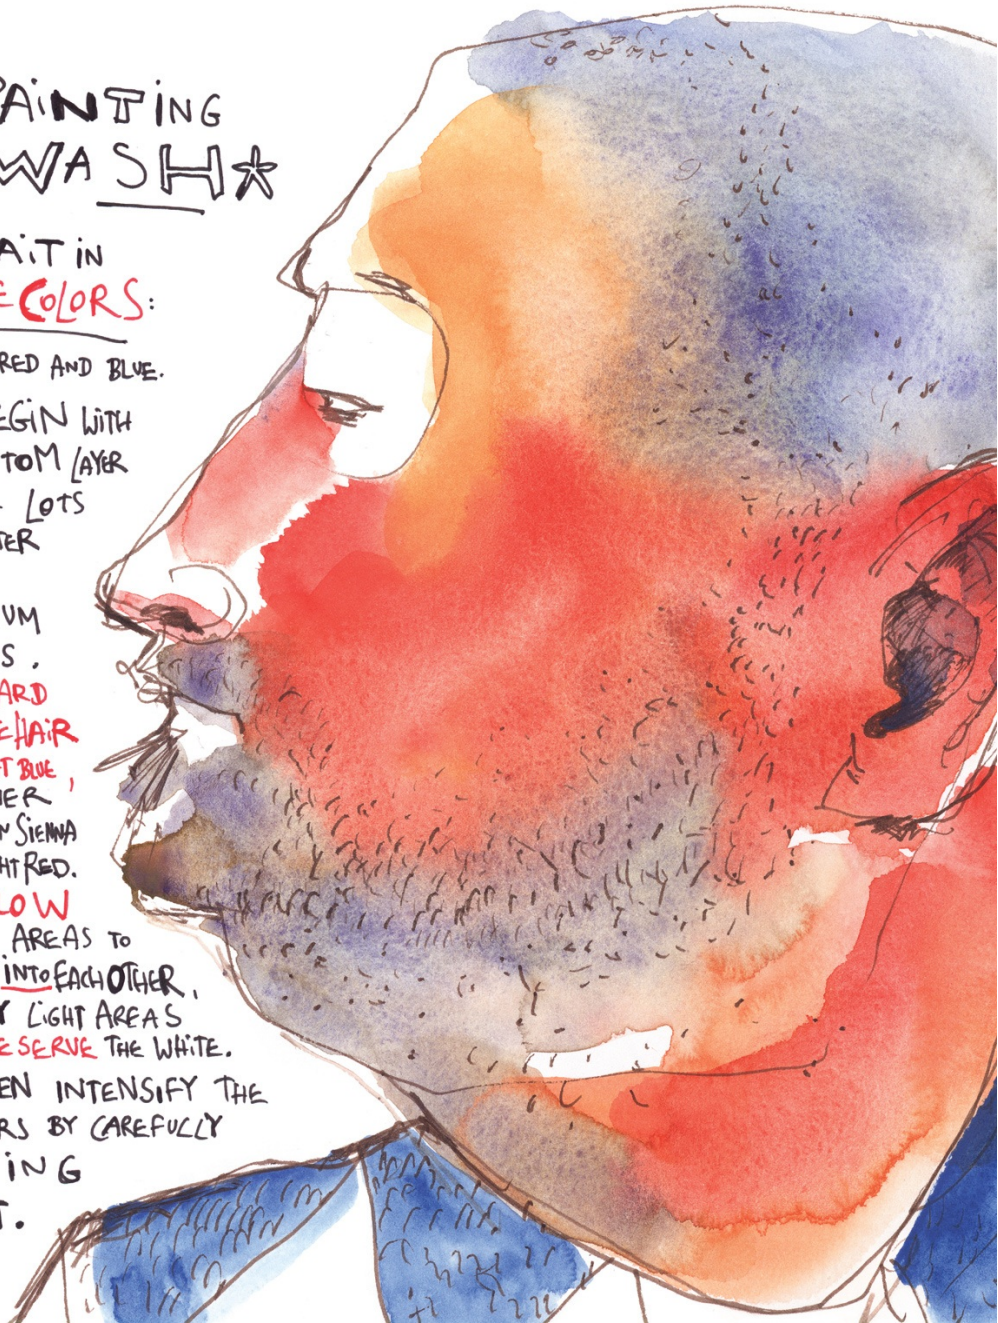 PAINTING
WASH*
AIT IN
E COLORS:
RED AND BLUE.
EGIN WITH
TOM LAYER
LOTS
TER
UM
S.
ARD
E HAIR
T BLUE,
ER
N SIENNA
HT RED.
LOW
AREAS TO
INTO EACH OTHER,
Y LIGHT AREAS
ESERVE THE WHITE.
EN INTENSIFY THE
RS BY CAREFULLY
ING
T.